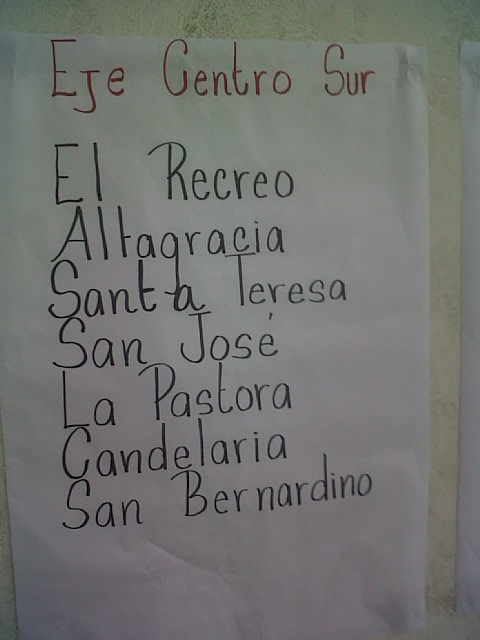 Eje Centro Sur
El Recreo
Altagracia
Santa Teresa
San José
La Pastora
Candelaria
San Bernardino